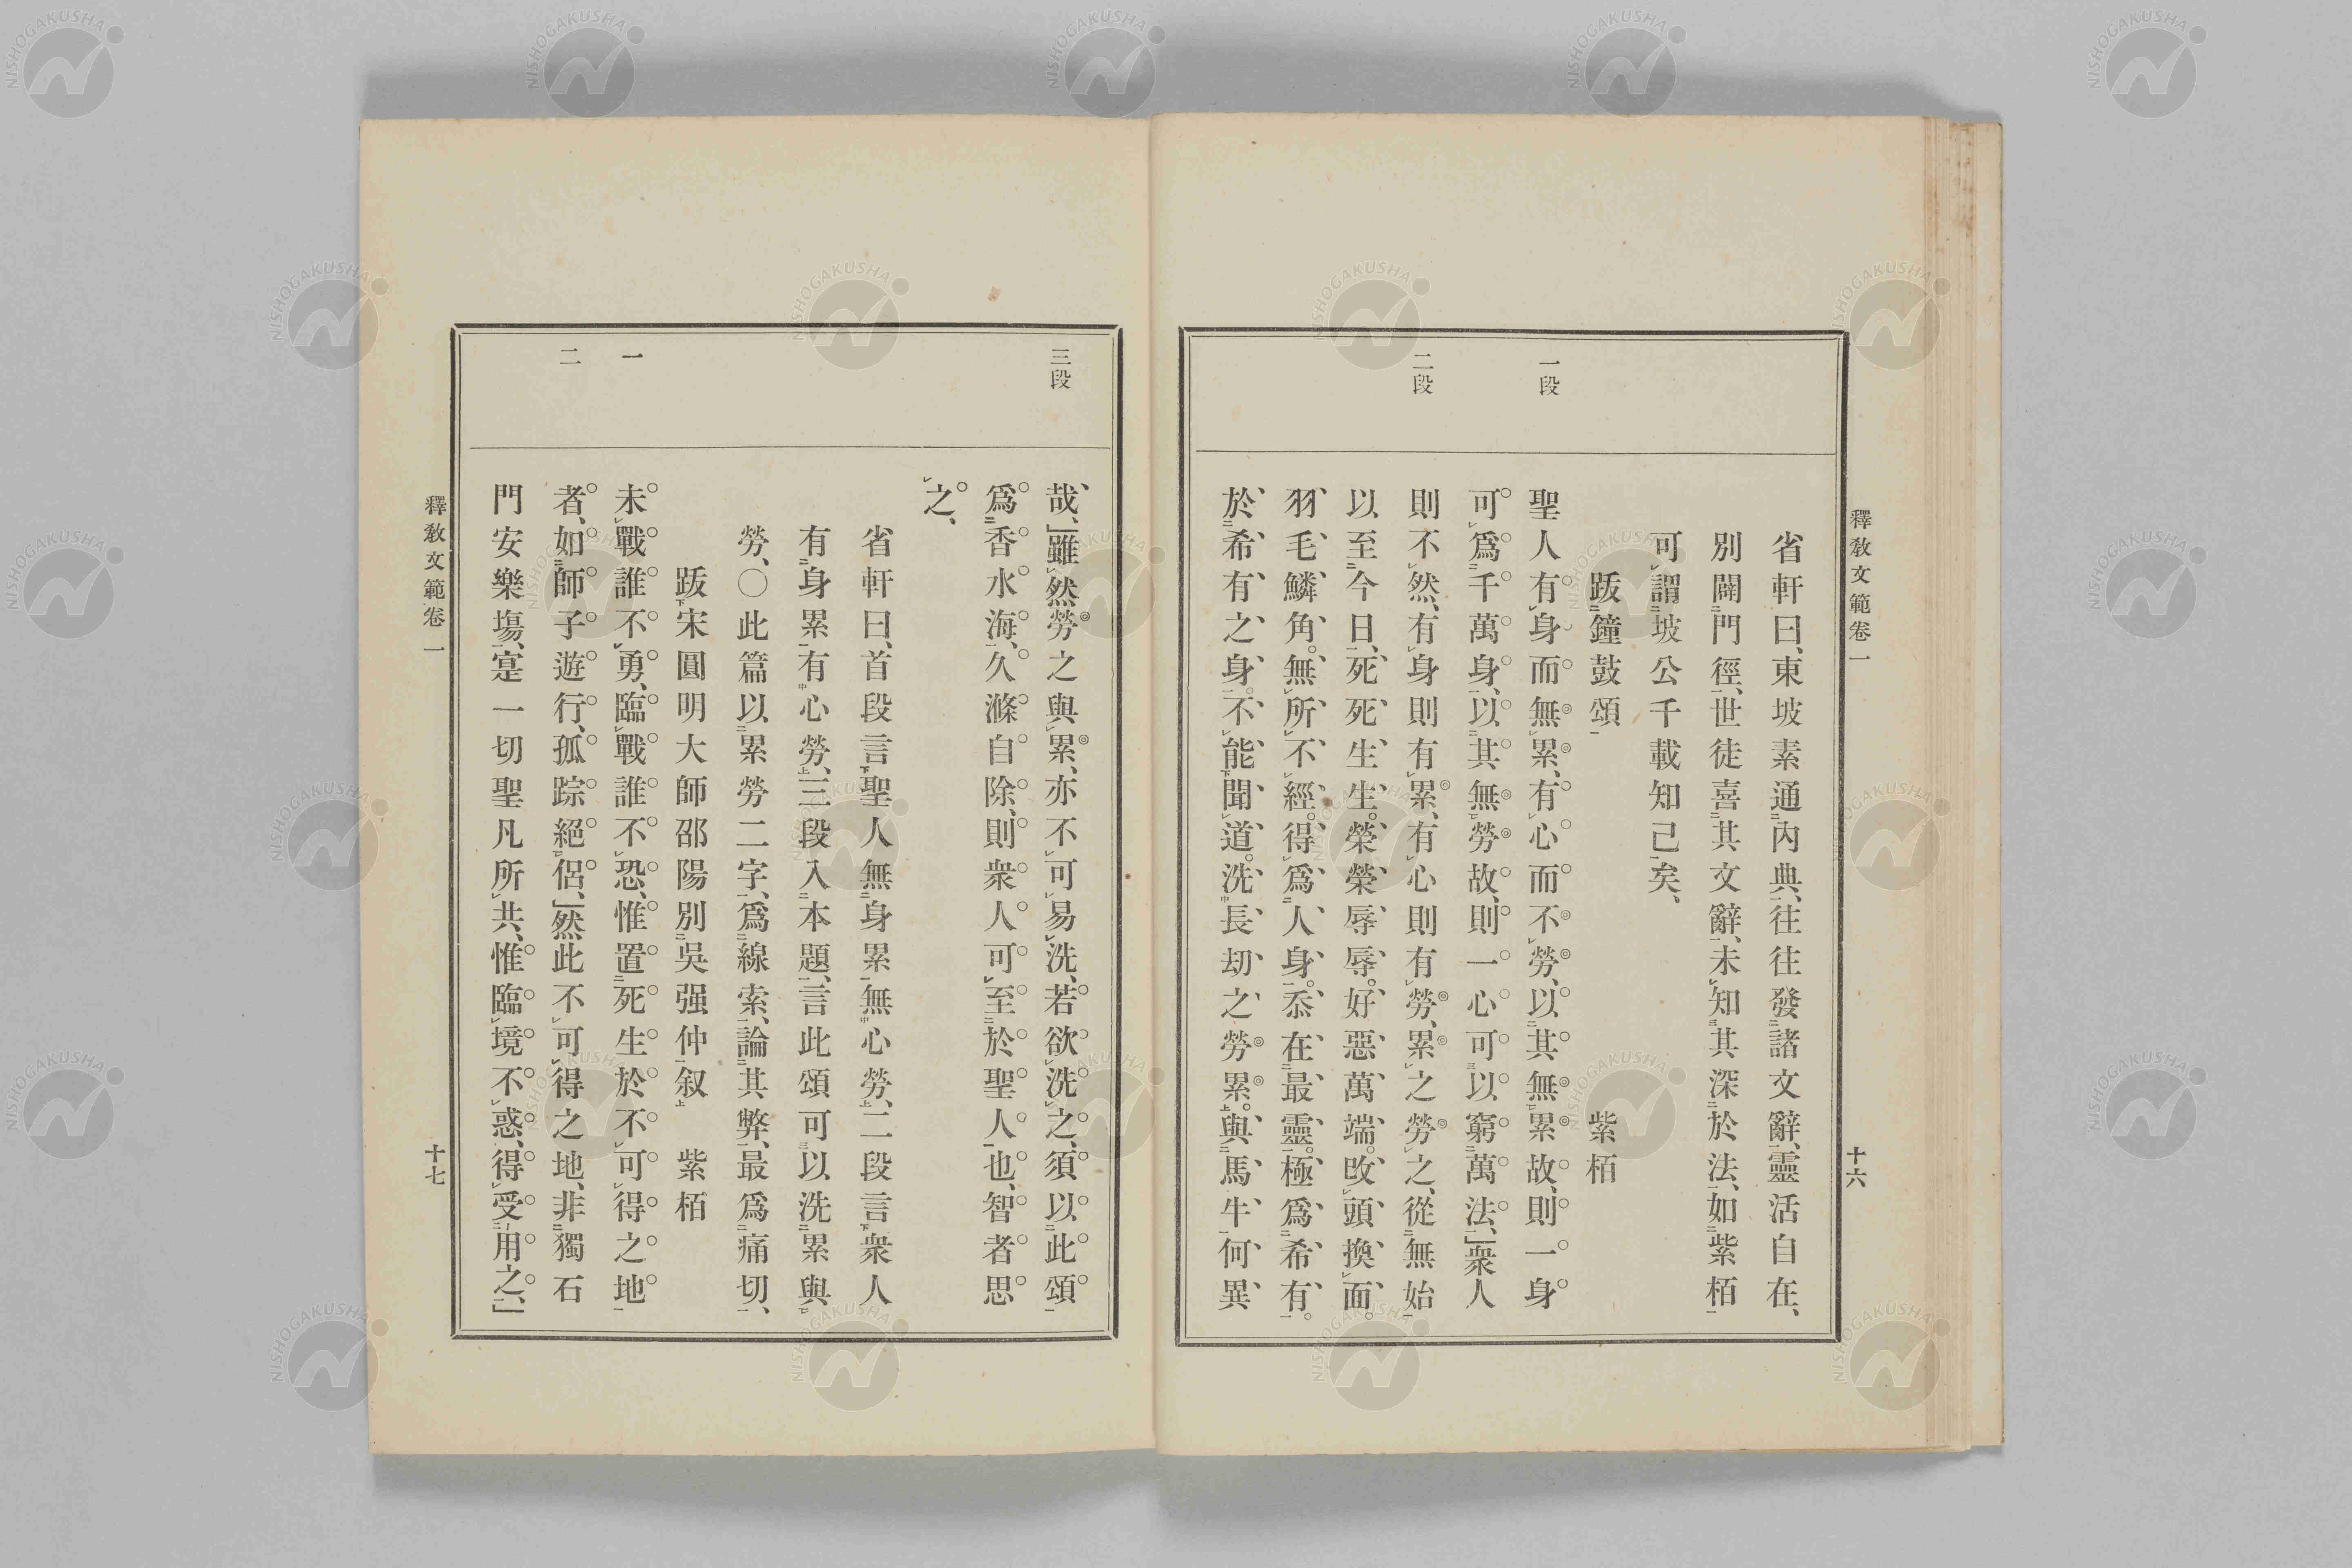 釋敎文範卷一
十六
省軒曰、東坡素通內典、往往發諸文辭、靈活自在、
別闢門徑、世徒喜其文辭、未知其深於法、如紫栢
可謂坡公千載知己矣、
跋鐘鼓頌 紫栢
一段
聖人有身而無累、有心而不勞、以其無累故、則一身
可爲千萬身、以其無勞故、則一心可以窮萬法、」衆人
二段
則不然、有身則有累、有心則有勞、累之勞之、從無始
以至今日、死死生生。榮榮辱辱。好惡萬端。改頭換面。
羽毛鱗角。無所不經。得爲人身。忝在最靈。極爲希有。
於希有之身。不能聞道。洗長劫之勞累。與馬牛何異
三段
哉、」雖然勞之與累、亦不可易洗、若欲洗之、須以此頌
爲香水海、久滌自除、則衆人可至於聖人也、智者思
之、
省軒曰、首段言聖人無身累無心勞、二段言衆人
有身累有心勞、三段入本題、言此頌可以洗累與
勞、○此篇以累勞二字、爲線索、論其弊、最爲痛切、
跋宋圓明大師邵陽別吳强仲叙 紫栢
一
未戰誰不勇、臨戰誰不恐、惟置死生於不可得之地
二
者、如師子遊行、孤踪絕侶、」然此不可得之地、非獨石
門安樂塲、寔一切聖凡所共、惟臨境不惑、得受用之、」
釋敎文範卷一
十七
NISHOGAKUSHA